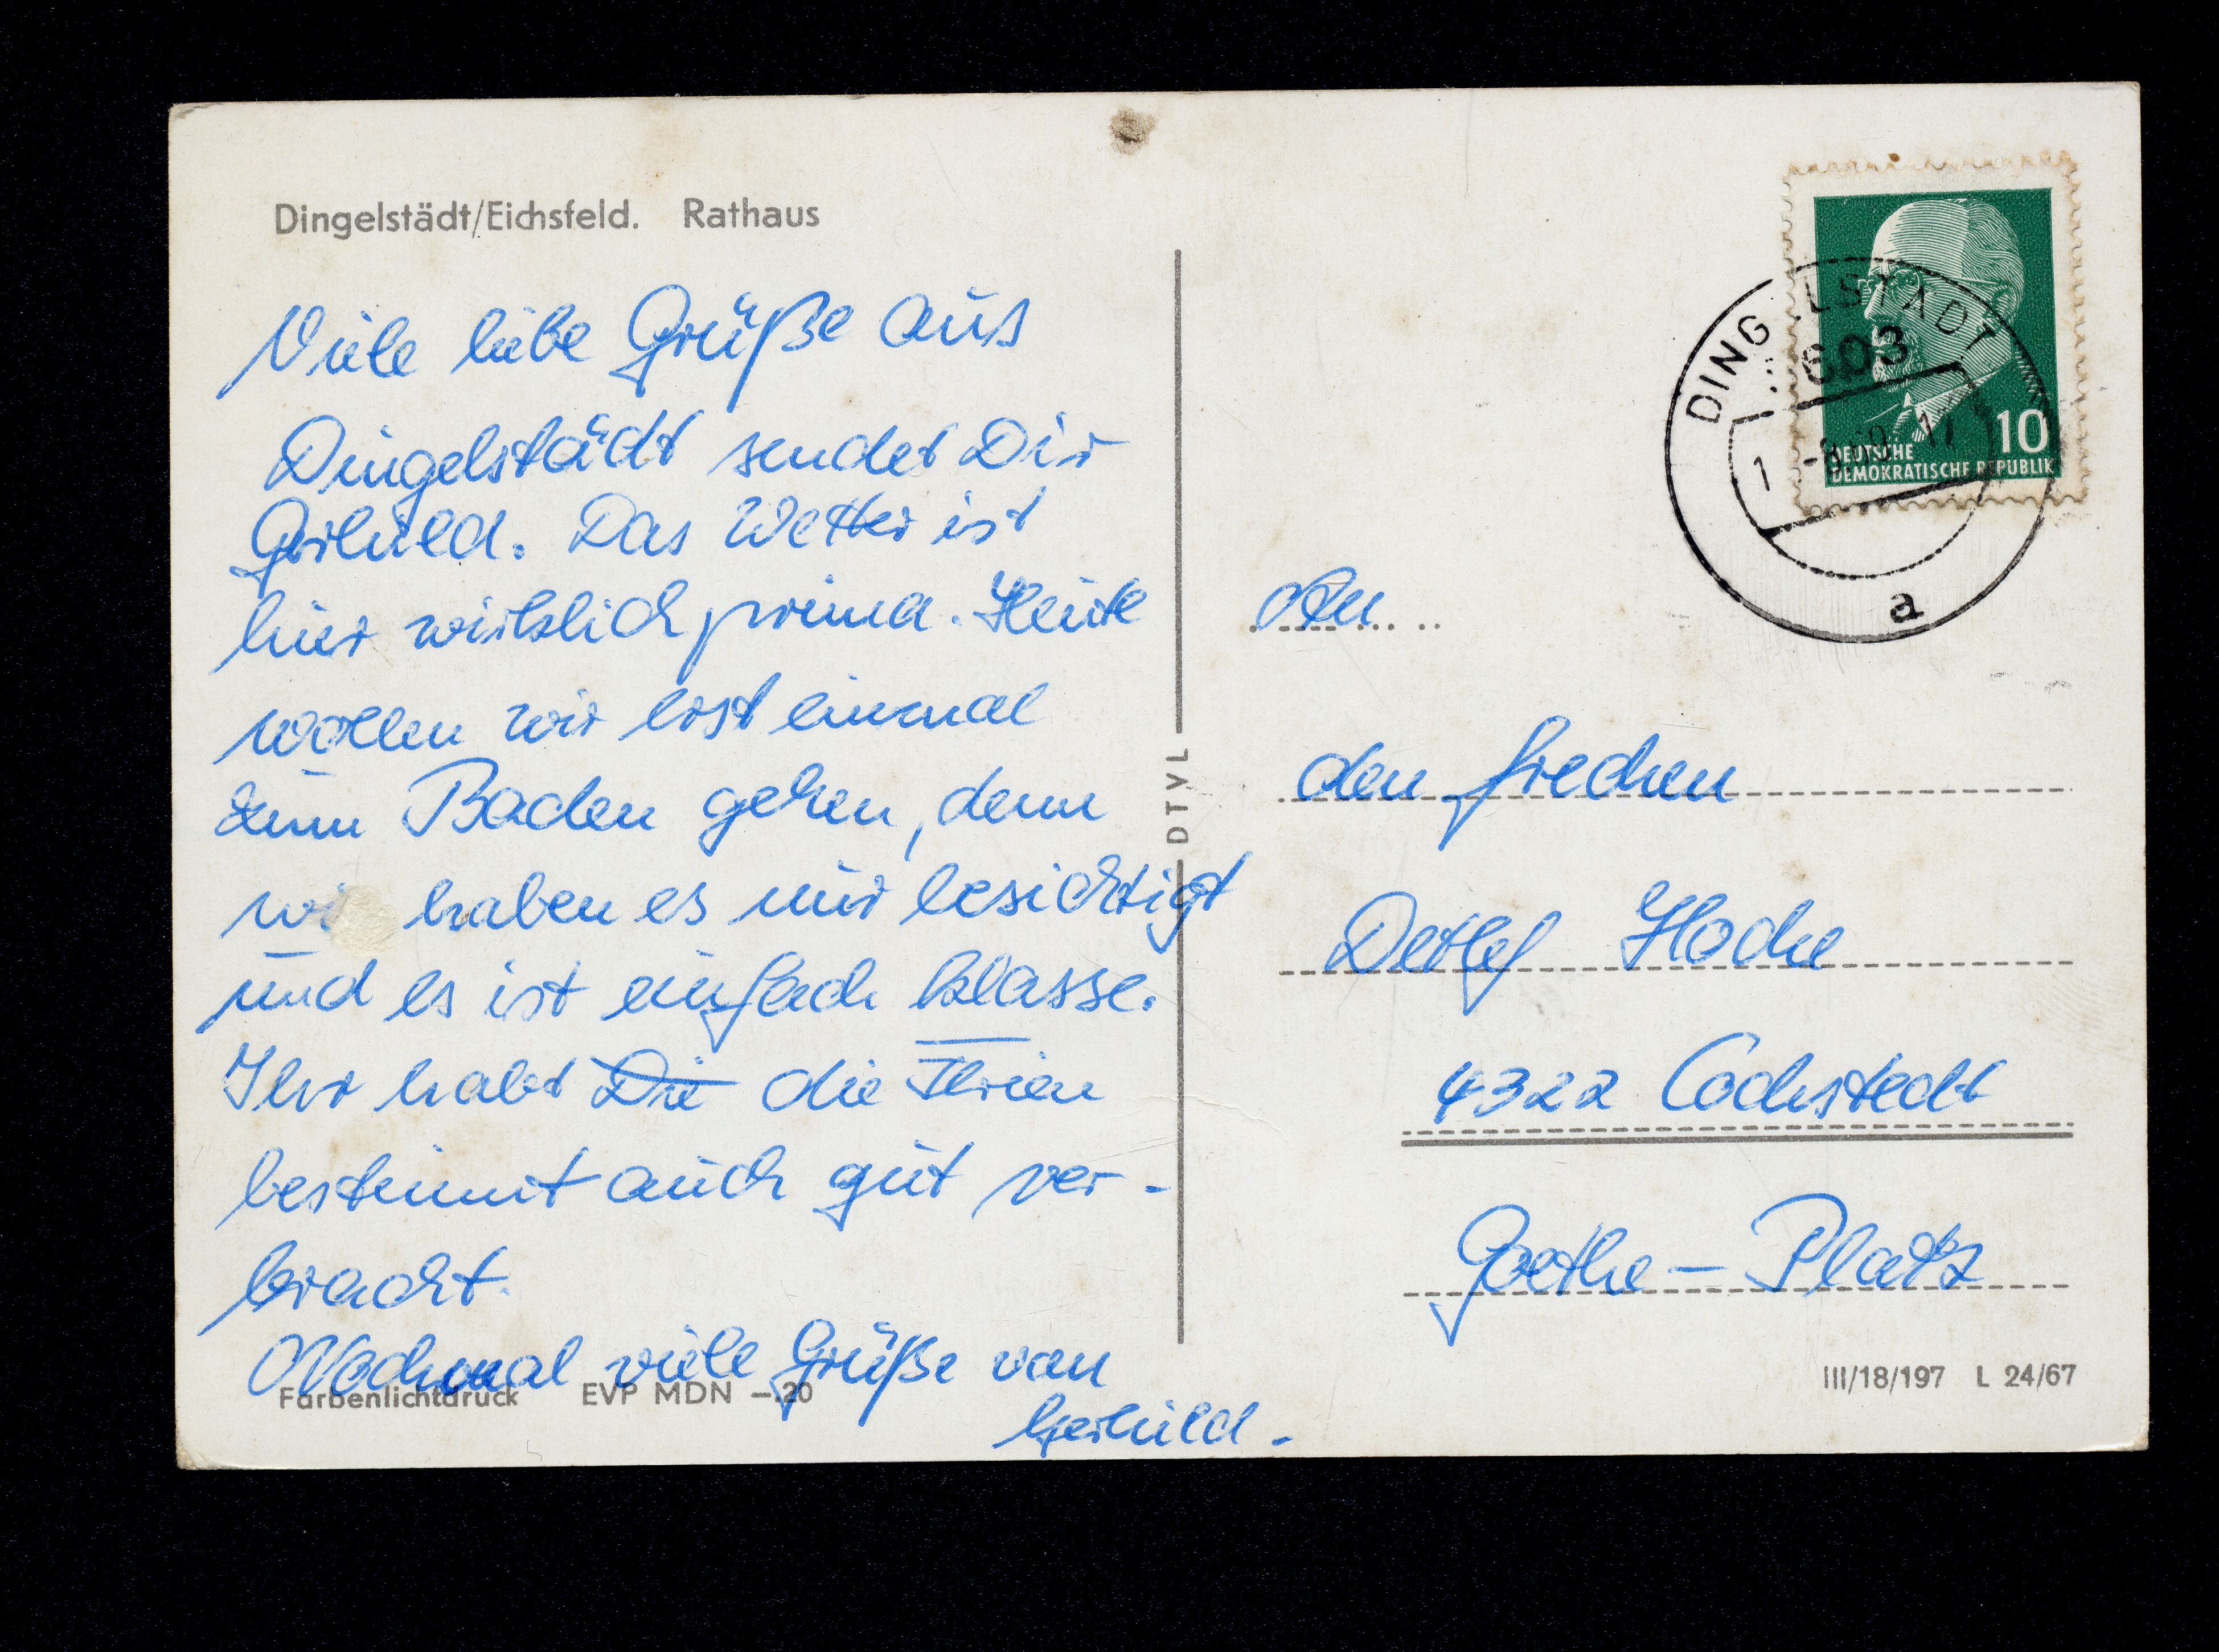 Dingelstädt/Eichsfeld. Rathaus
Viele liebe Grüße aus
Dingelstädt sendet Dir
Gerhild. Das Wetter ist
hier wirklich prima. Heute
wollen wir erst einmal
zum Baden gehen, denn
wi haben es nur besichtigt
und es ist einfach klasse.
Ihr habt Die die Ferien
bestimmt auch gut ver-
bracht.
Nochmal viele Grüße von
Gerhild.
Farbenlichtdruck EVP MDN -.20
DTVL
DEUTSCHE
DEMOKRATISCHE REPUBLIK
10
DINGELSTÄDT
603
a
An
den frechen
Detlef Hoche
4322 Cochstedt
Goethe-Platz
III/18/197 L 24/67